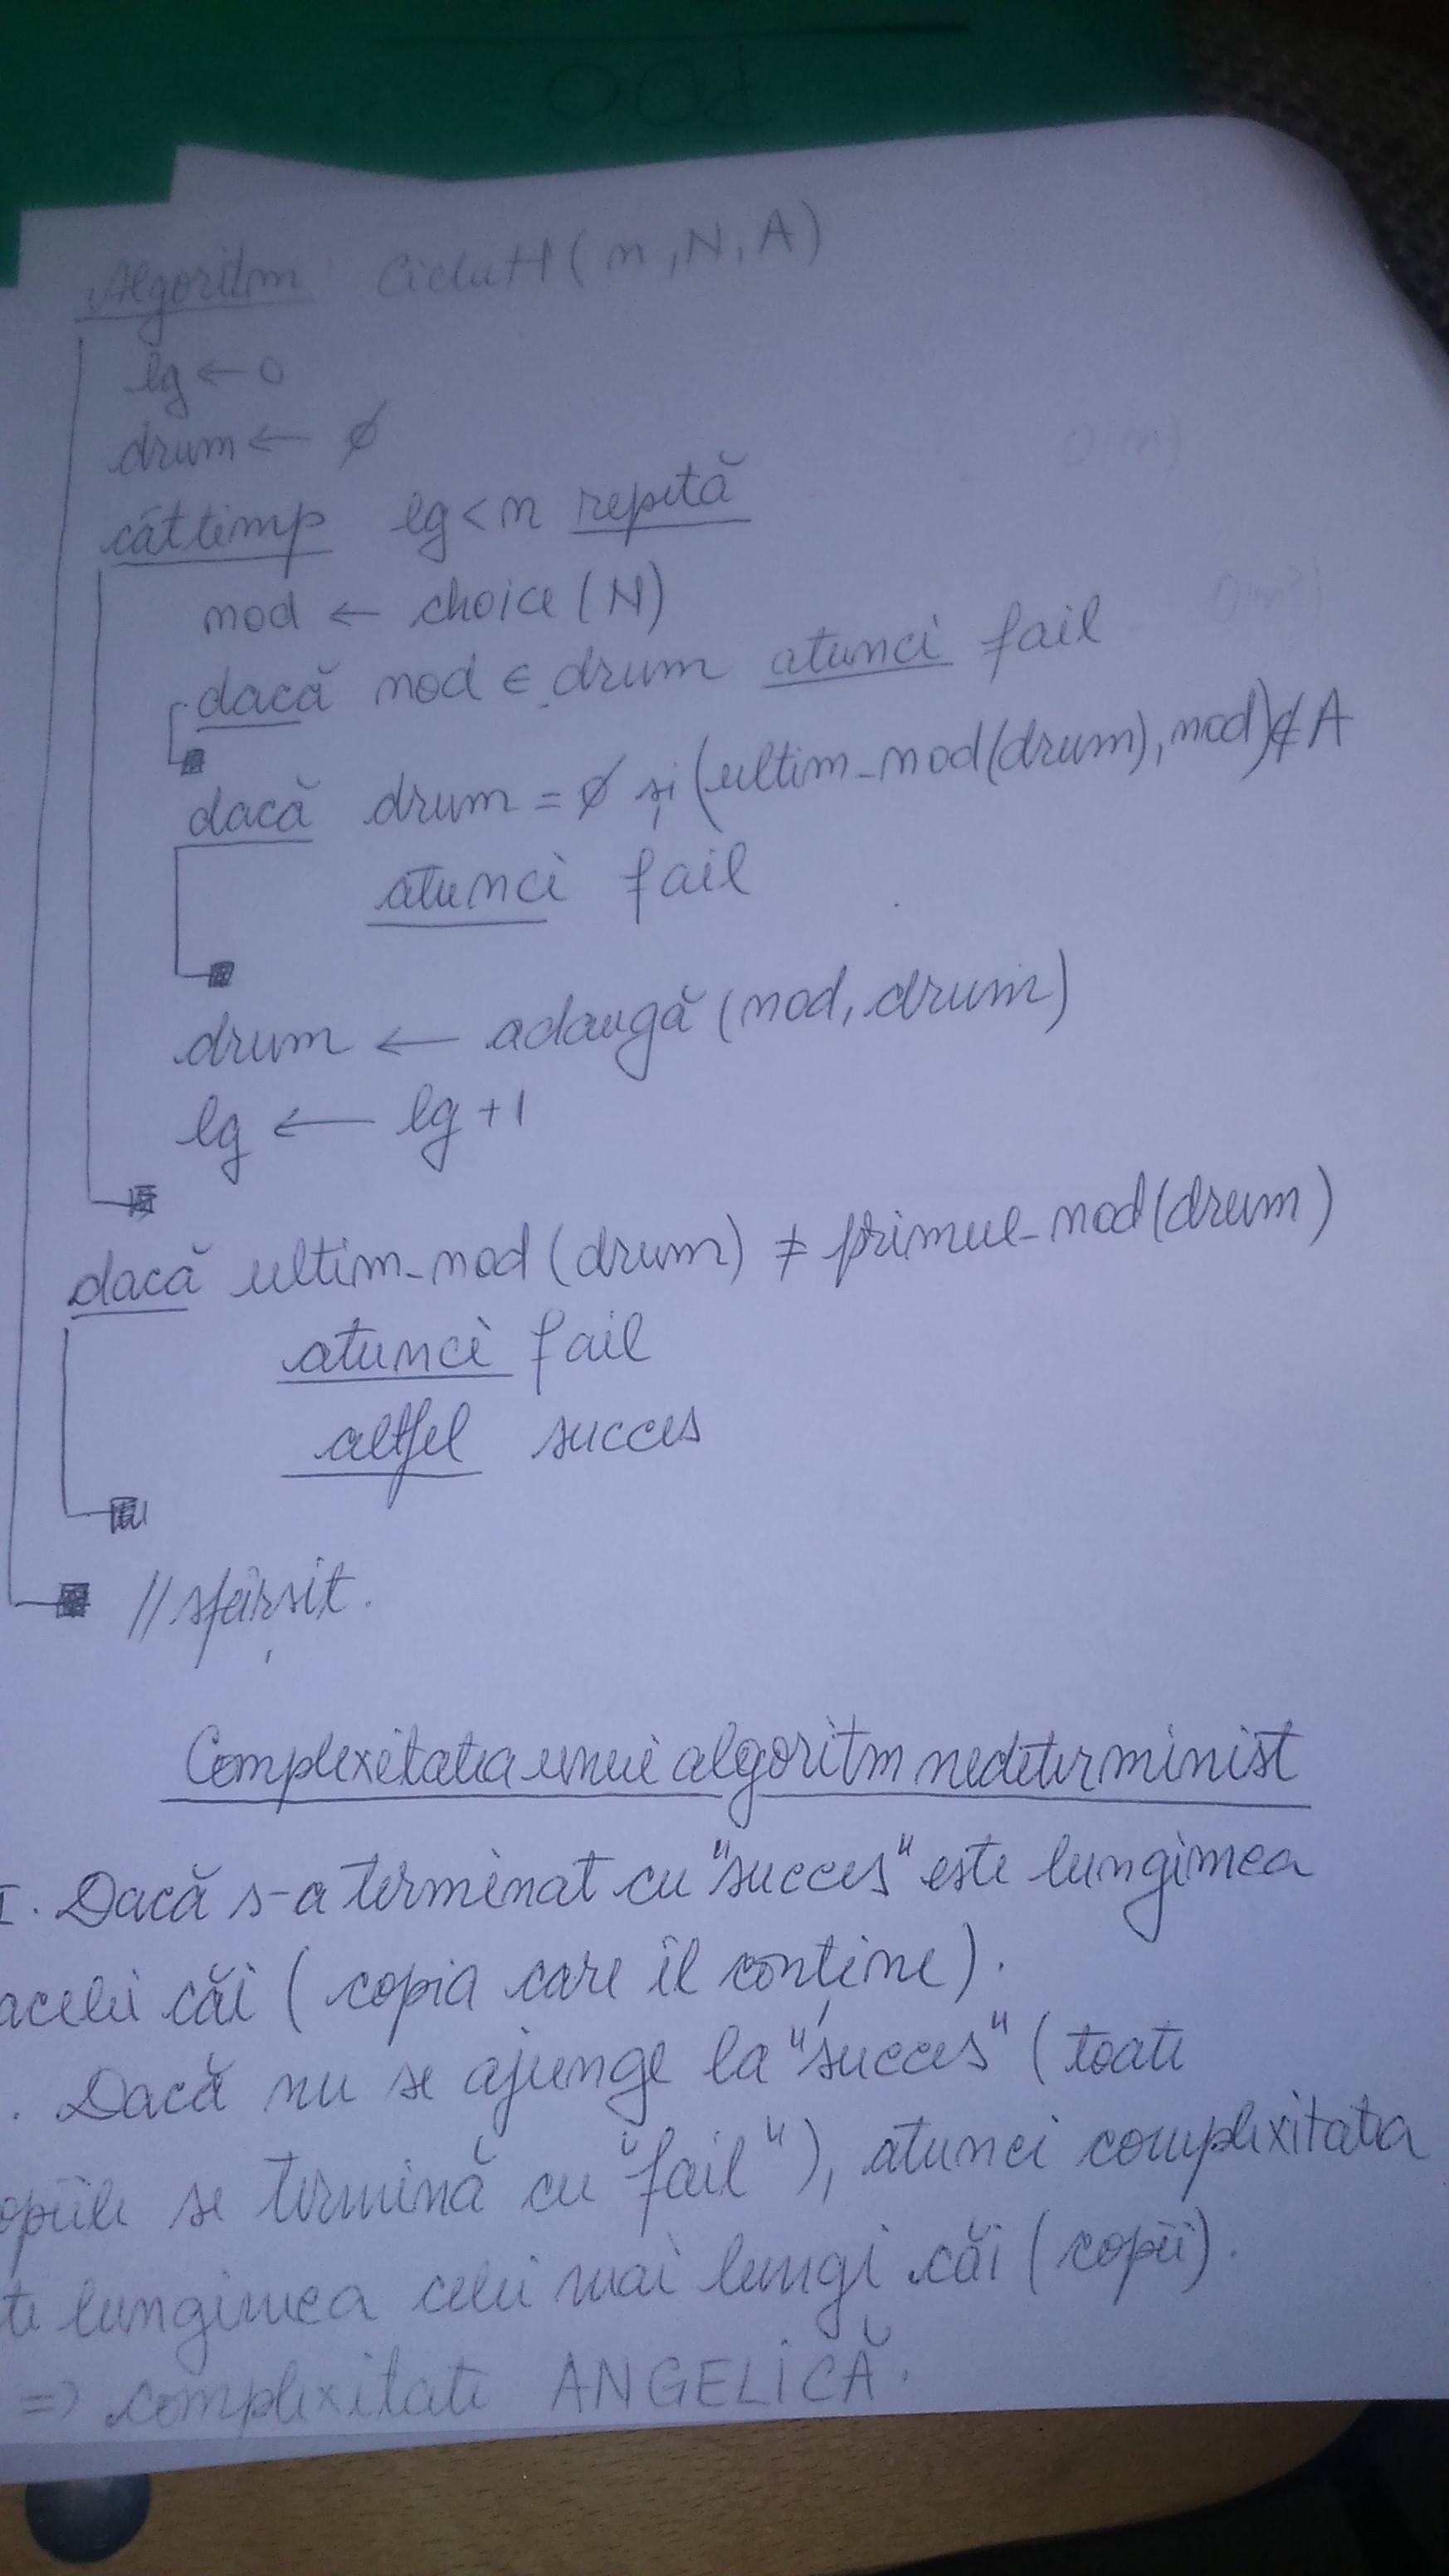 POO
Algoritm CicluH(n,N,A)
lg ← 0
drum ← ∅
câttimp lg < n repetă
nod ← choice(N)
dacă nod ∈ drum atunci fail
dacă drum = ∅ și (ultim_nod(drum), nod) ∉ A
atunci fail
drum ← adaugă (nod, drum)
lg ← lg + 1
dacă ultim_nod (drum) ≠ primul_nod (drum)
atunci fail
altfel succes
// sfârșit.
Complexitatea unui algoritm nedeterminist
I. Dacă s-a terminat cu "succes" este lungimea
acelei căi (copia care îl conține).
. Dacă nu se ajunge la "succes" (toate
opiile se termină cu "fail"), atunci complexitatea
te lungimea celei mai lungi căi (copii).
=> complexitate ANGELICĂ.